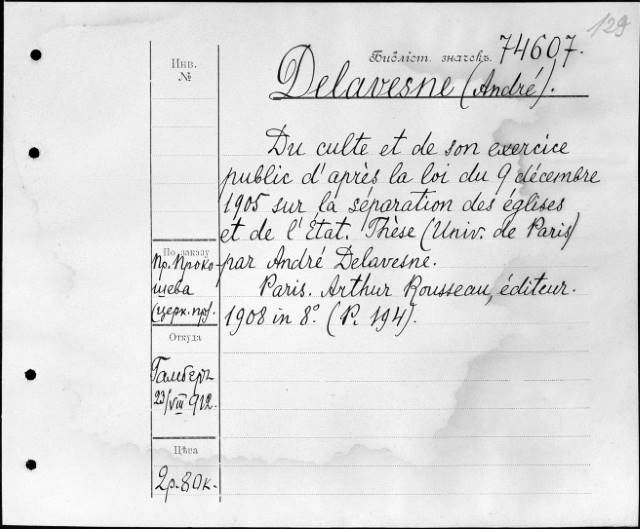 129
Инв.
№
Библіот. значекъ 74607.
Delavesne (André).
Du culte et de son exercice
public d'après la loi du 9 décembre
1905 sur la séparation des églises
et de l'État. Thèse (Univ. de Paris)
par André Delavesne.
Paris. Arthur Rousseau, éditeur.
1908 in 8º. (P. 194).
По заказу
Пр. Проко-
шева
(церк. пр.).
Откуда
Гамберъ
23/VIII 912.
Цѣна
2р. 80к.